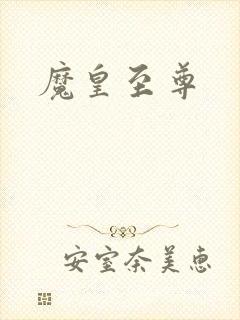 魔皇至尊
安室奈美恵